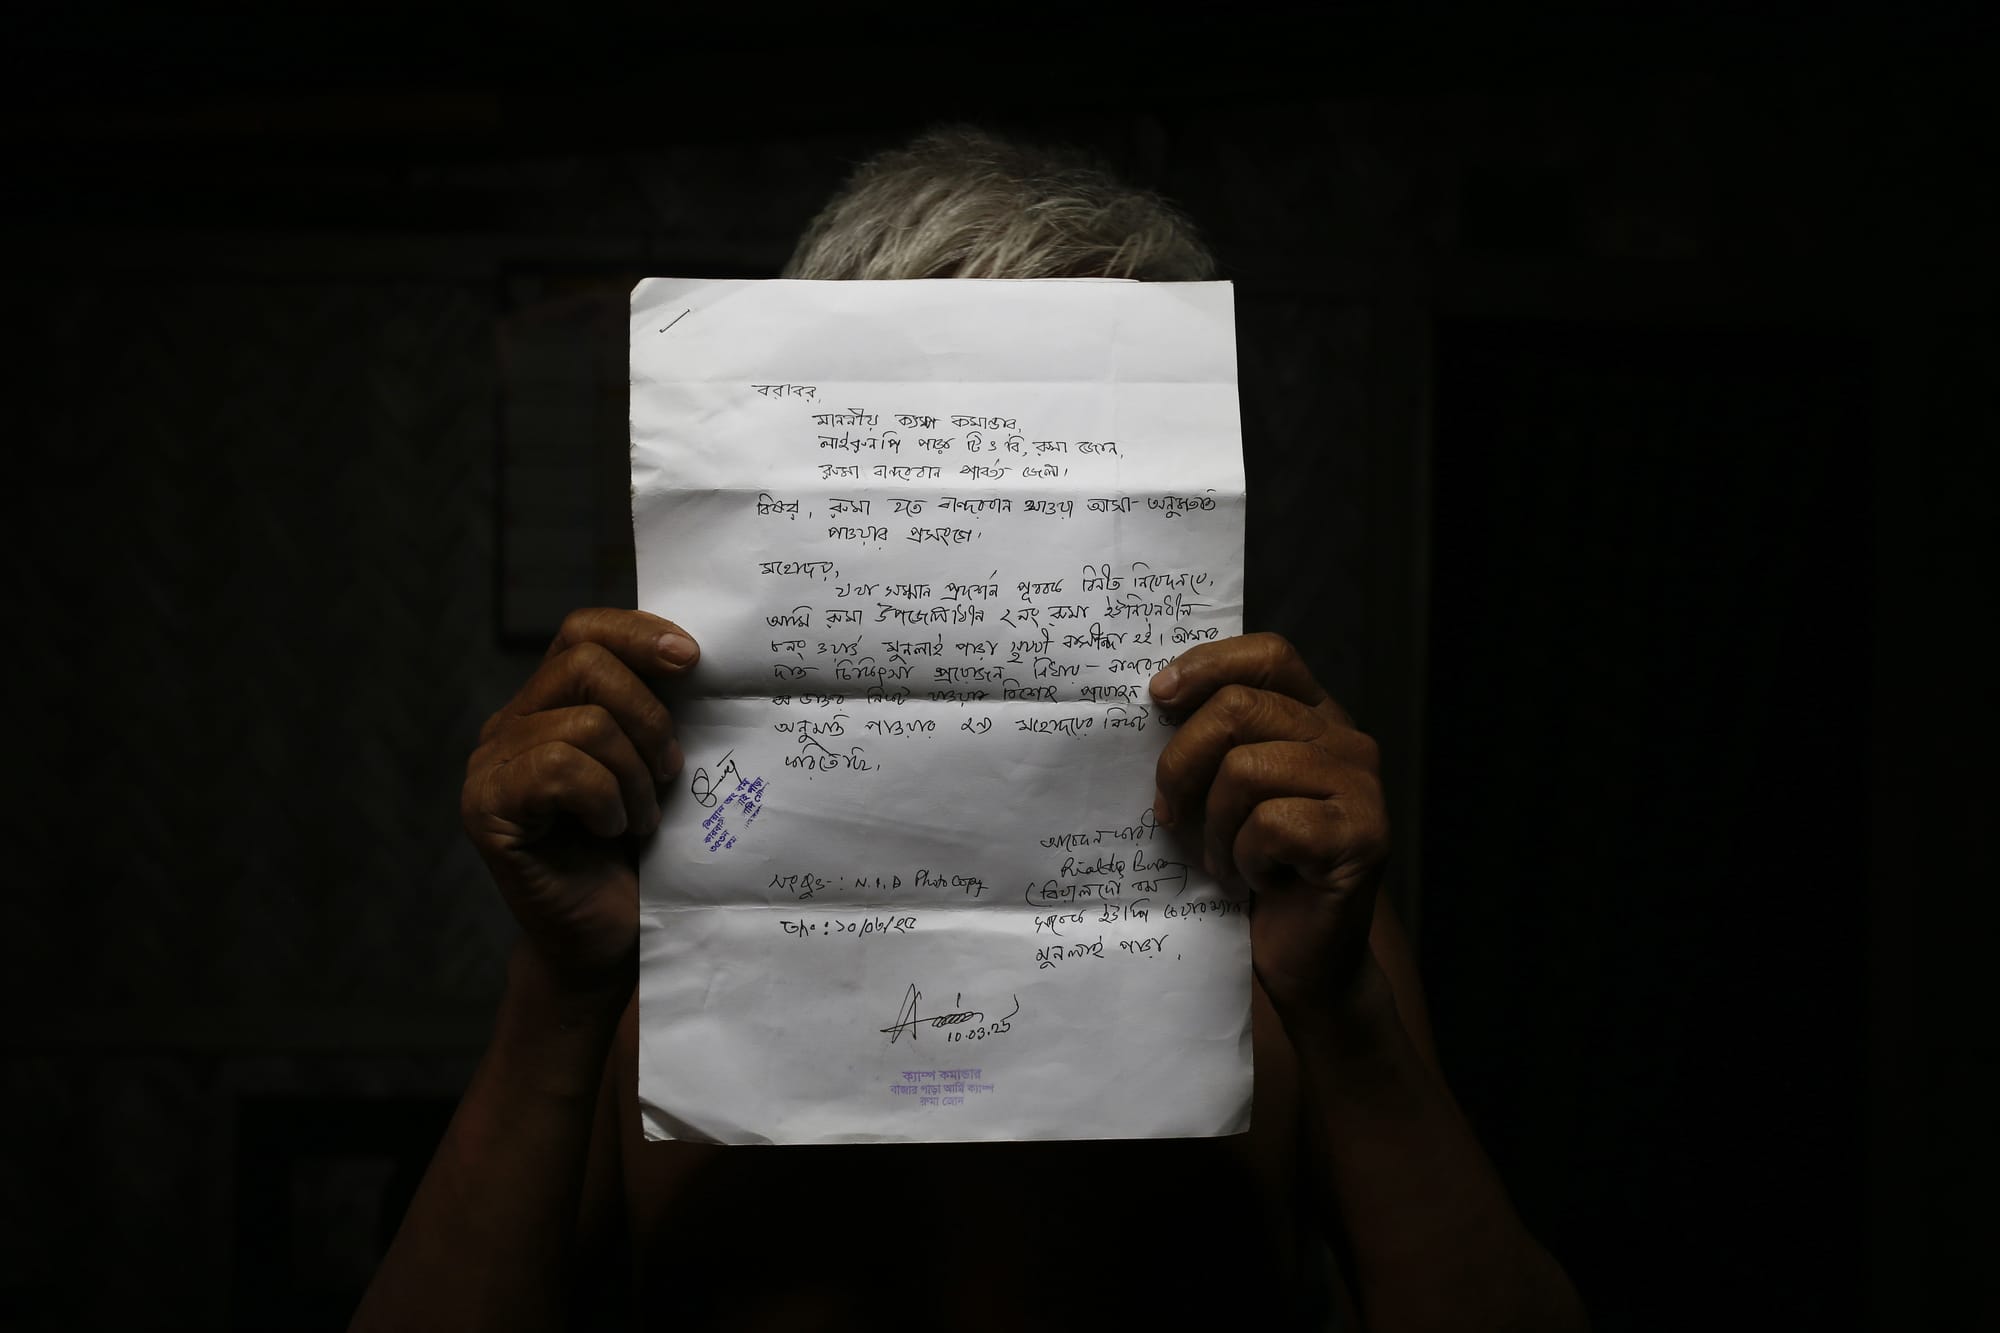 বরাবর,
মাননীয় ক্যাম্প কমান্ডার,
লাইরুনপি পাড়া টিওবি, রুমা জোন,
রুমা বান্দরবান পার্বত্য জেলা।
বিষয়, রুমা হতে বান্দরবান যাওয়া আসা- অনুমতি
পাওয়ার প্রসংগে।
মহোদয়,
যথা সম্মান প্রদর্শন পূর্বক বিনীত নিবেদন যে,
আমি রুমা উপজেলাধীন ২নং রুমা ইউনিয়নধীন
৮নং ওয়ার্ড মুনলাই পাড়া স্থায়ী বাসীন্দা হই। আমার
দাঁত চিকিৎসা প্রয়োজন বিধায়- বান্দরবা
ডাক্তার নিকট যাওয়ার বিশেষ প্রয়োজন
অনুমতি পাওয়ার জন্য মহোদয়ের নিকট
করিতেছি।
পিয়ান অং বম
কারবারী
আবেদনকারী
(রিয়ালদো বম)
সংযুক্ত-: N.I.D Photo Copy
সাবেক ইউপি চেয়ারম্যান
তাং: ১০/০৩/২৫
মুনলাই পাড়া,
10.03.25
ক্যাম্প কমান্ডার
বাজার পাড়া আর্মি ক্যাম্প
রুমা জোন